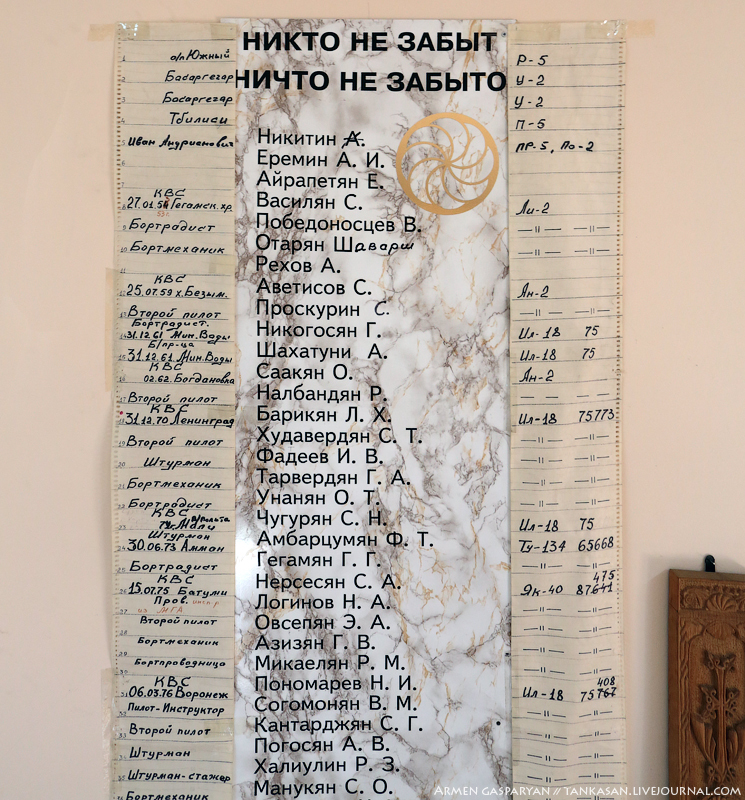 НИКТО НЕ ЗАБЫТ
НИЧТО НЕ ЗАБЫТО
1 о/п Южный
2 Басаргечар
3 Басаргечар
4 Тбилиси
5 Иван Андрианович
6
7 КВС
8 27.01.54 Гегамск. хр.
53г.
9 Бортрадист
10 Бортмеханик
11
КВС
12 25.07.59 х.Безым.
13 Второй пилот
Бортрадист.
14 31.12.61 Мин.Воды
Б/пр-ца
15 31.12.61 Мин.Воды
КВС
16 02.62. Богдановка
17 Второй пилот
КВС
18 31.12.70 Ленинград
19 Второй пилот
20 Штурман
21 Бортмеханик
22 Бортрадист
КВС
23 74г. Мали
Штурман
24 30.06.73 Амман
25 Бортрадист
КВС
26 15.07.75 Батуми
27 Пров.
из МГА
Второй пилот
Бортмеханик
Бортпроводница
КВС
31 06.03.76 Воронеж
Пилот-Инструктор
33 Второй пилот
34 Штурман
35 Штурман-стажер
Бортмеханик
Никитин А.
Еремин А. И.
Айрапетян Е.
Василян С.
Победоносцев В.
Отарян Шаварш
Рехов А.
Аветисов С.
Проскурин С.
Никогосян Г.
Шахатуни А.
Саакян О.
Налбандян Р.
Барикян Л. Х.
Худавердян С. Т.
Фадеев И. В.
Тарвердян Г. А.
Унанян О. Т.
Чугурян С. Н.
Амбарцумян Ф. Т.
Гегамян Г. Г.
Нерсесян С. А.
Логинов Н. А.
Овсепян Э. А.
Азизян Г. В.
Микаелян Р. М.
Пономарев Н. И.
Согомонян В. М.
Кантарджян С. Г.
Погосян А. В.
Халиулин Р. З.
Манукян С. О.
Р-5
У-2
У-2
П-5
ПР-5, По-2
Ли-2
—〃— —〃—
—〃— —〃—
Ан-2
—〃— —〃—
Ил-18 75
Ил-18 75
Ан-2
—〃— —〃—
Ил-18 75773
—〃— —〃—
—〃— —〃—
—〃— —〃—
—〃— —〃—
Ил-18 75
Ту-134 65668
—〃— —〃—
475
Як-40 87641
—〃— —〃—
—〃— —〃—
—〃— —〃—
—〃— —〃—
408
Ил-18 75767
—〃— —〃—
—〃— —〃—
—〃— —〃—
—〃— —〃—
—〃— —〃—
ARMEN GASPARYAN // TANKASAN.LIVEJOURNAL.COM